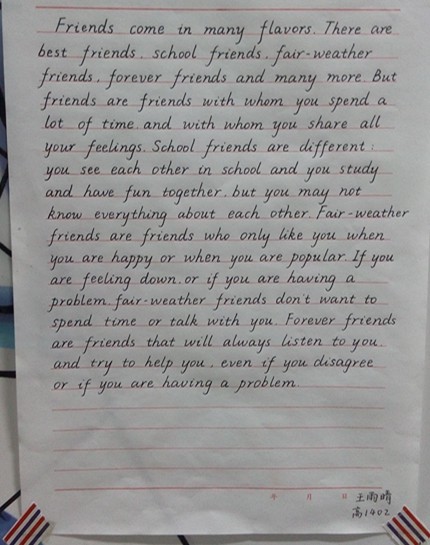 Friends come in many flavors. There are
best friends, school friends, fair-weather
friends, forever friends and many more. But
friends are friends with whom you spend a
lot of time and with whom you share all
your feelings. School friends are different:
you see each other in school and you study
and have fun together, but you may not
know everything about each other. Fair-weather
friends are friends who only like you when
you are happy or when you are popular. If you
are feeling down, or if you are having a
problem, fair-weather friends don't want to
spend time or talk with you. Forever friends
are friends that will always listen to you,
and try to help you, even if you disagree
or if you are having a problem.
年 月 日 王雨晴
高1402